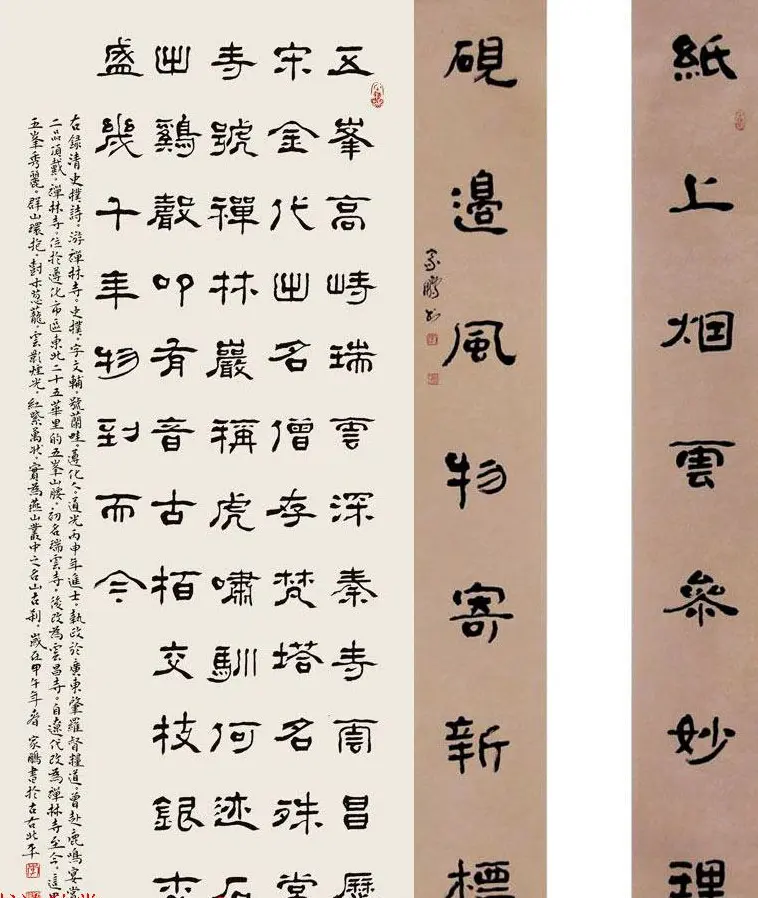 紙上烟雲叅妙理
硯邊風物寄新標
家鵬書
五峯高峙瑞雲深秦寺雲昌歷
宋金代出名僧存梵塔名殊堂
寺號禪林巖稱虎嘯馴何迹石
出鷄聲叩有音古栢交技銀杏
盛幾千年物到而今
右錄清史樸詩。游禪林寺。史樸，字文輔，號蘭畦，遵化人，道光丙申年進士，執政於廣東肇羅督糧道，曾赴鹿鳴宴賞
二品頂戴，禪林寺，位於遵化市區東北二十五華里的五峯山腰，初名瑞雲寺，後改為雲昌寺，自遼代改為禪林寺至今，這里
五峯秀麗，群山環抱，樹木葱蘢，雲影煙光，紅紫萬狀，實為燕山叢中之名山古刹，歲在甲午年春 家鵬書於古右北平